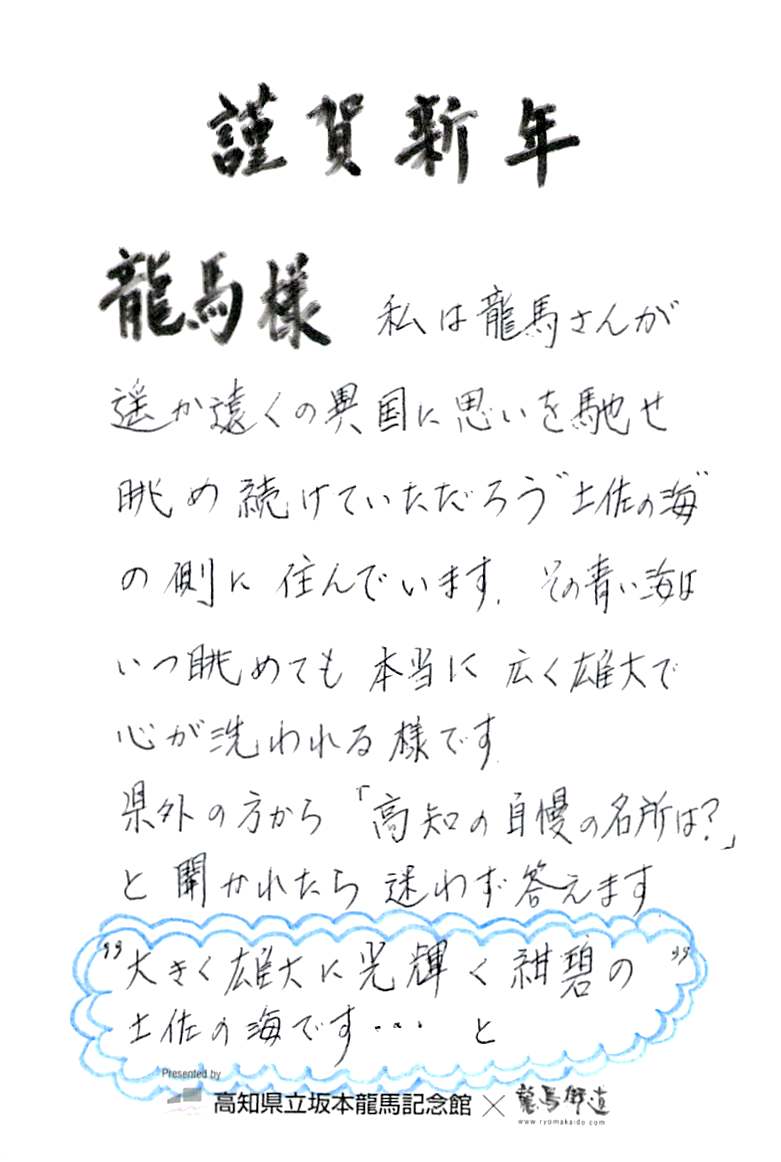 謹賀新年
龍馬様 私は龍馬さんが
遥か遠くの異国に思いを馳せ
眺め続けていただろう"土佐の海"
の側に住んでいます. その青い海は
いつ眺めても本当に広く雄大で
心が洗われる様です.
県外の方から「高知の自慢の名所は?」
と聞かれたら迷わず答えます
"大きく雄大に光輝く紺碧の"
土佐の海です… と
Presented by
高知県立坂本龍馬記念館×龍馬街道
www.ryomakaido.com